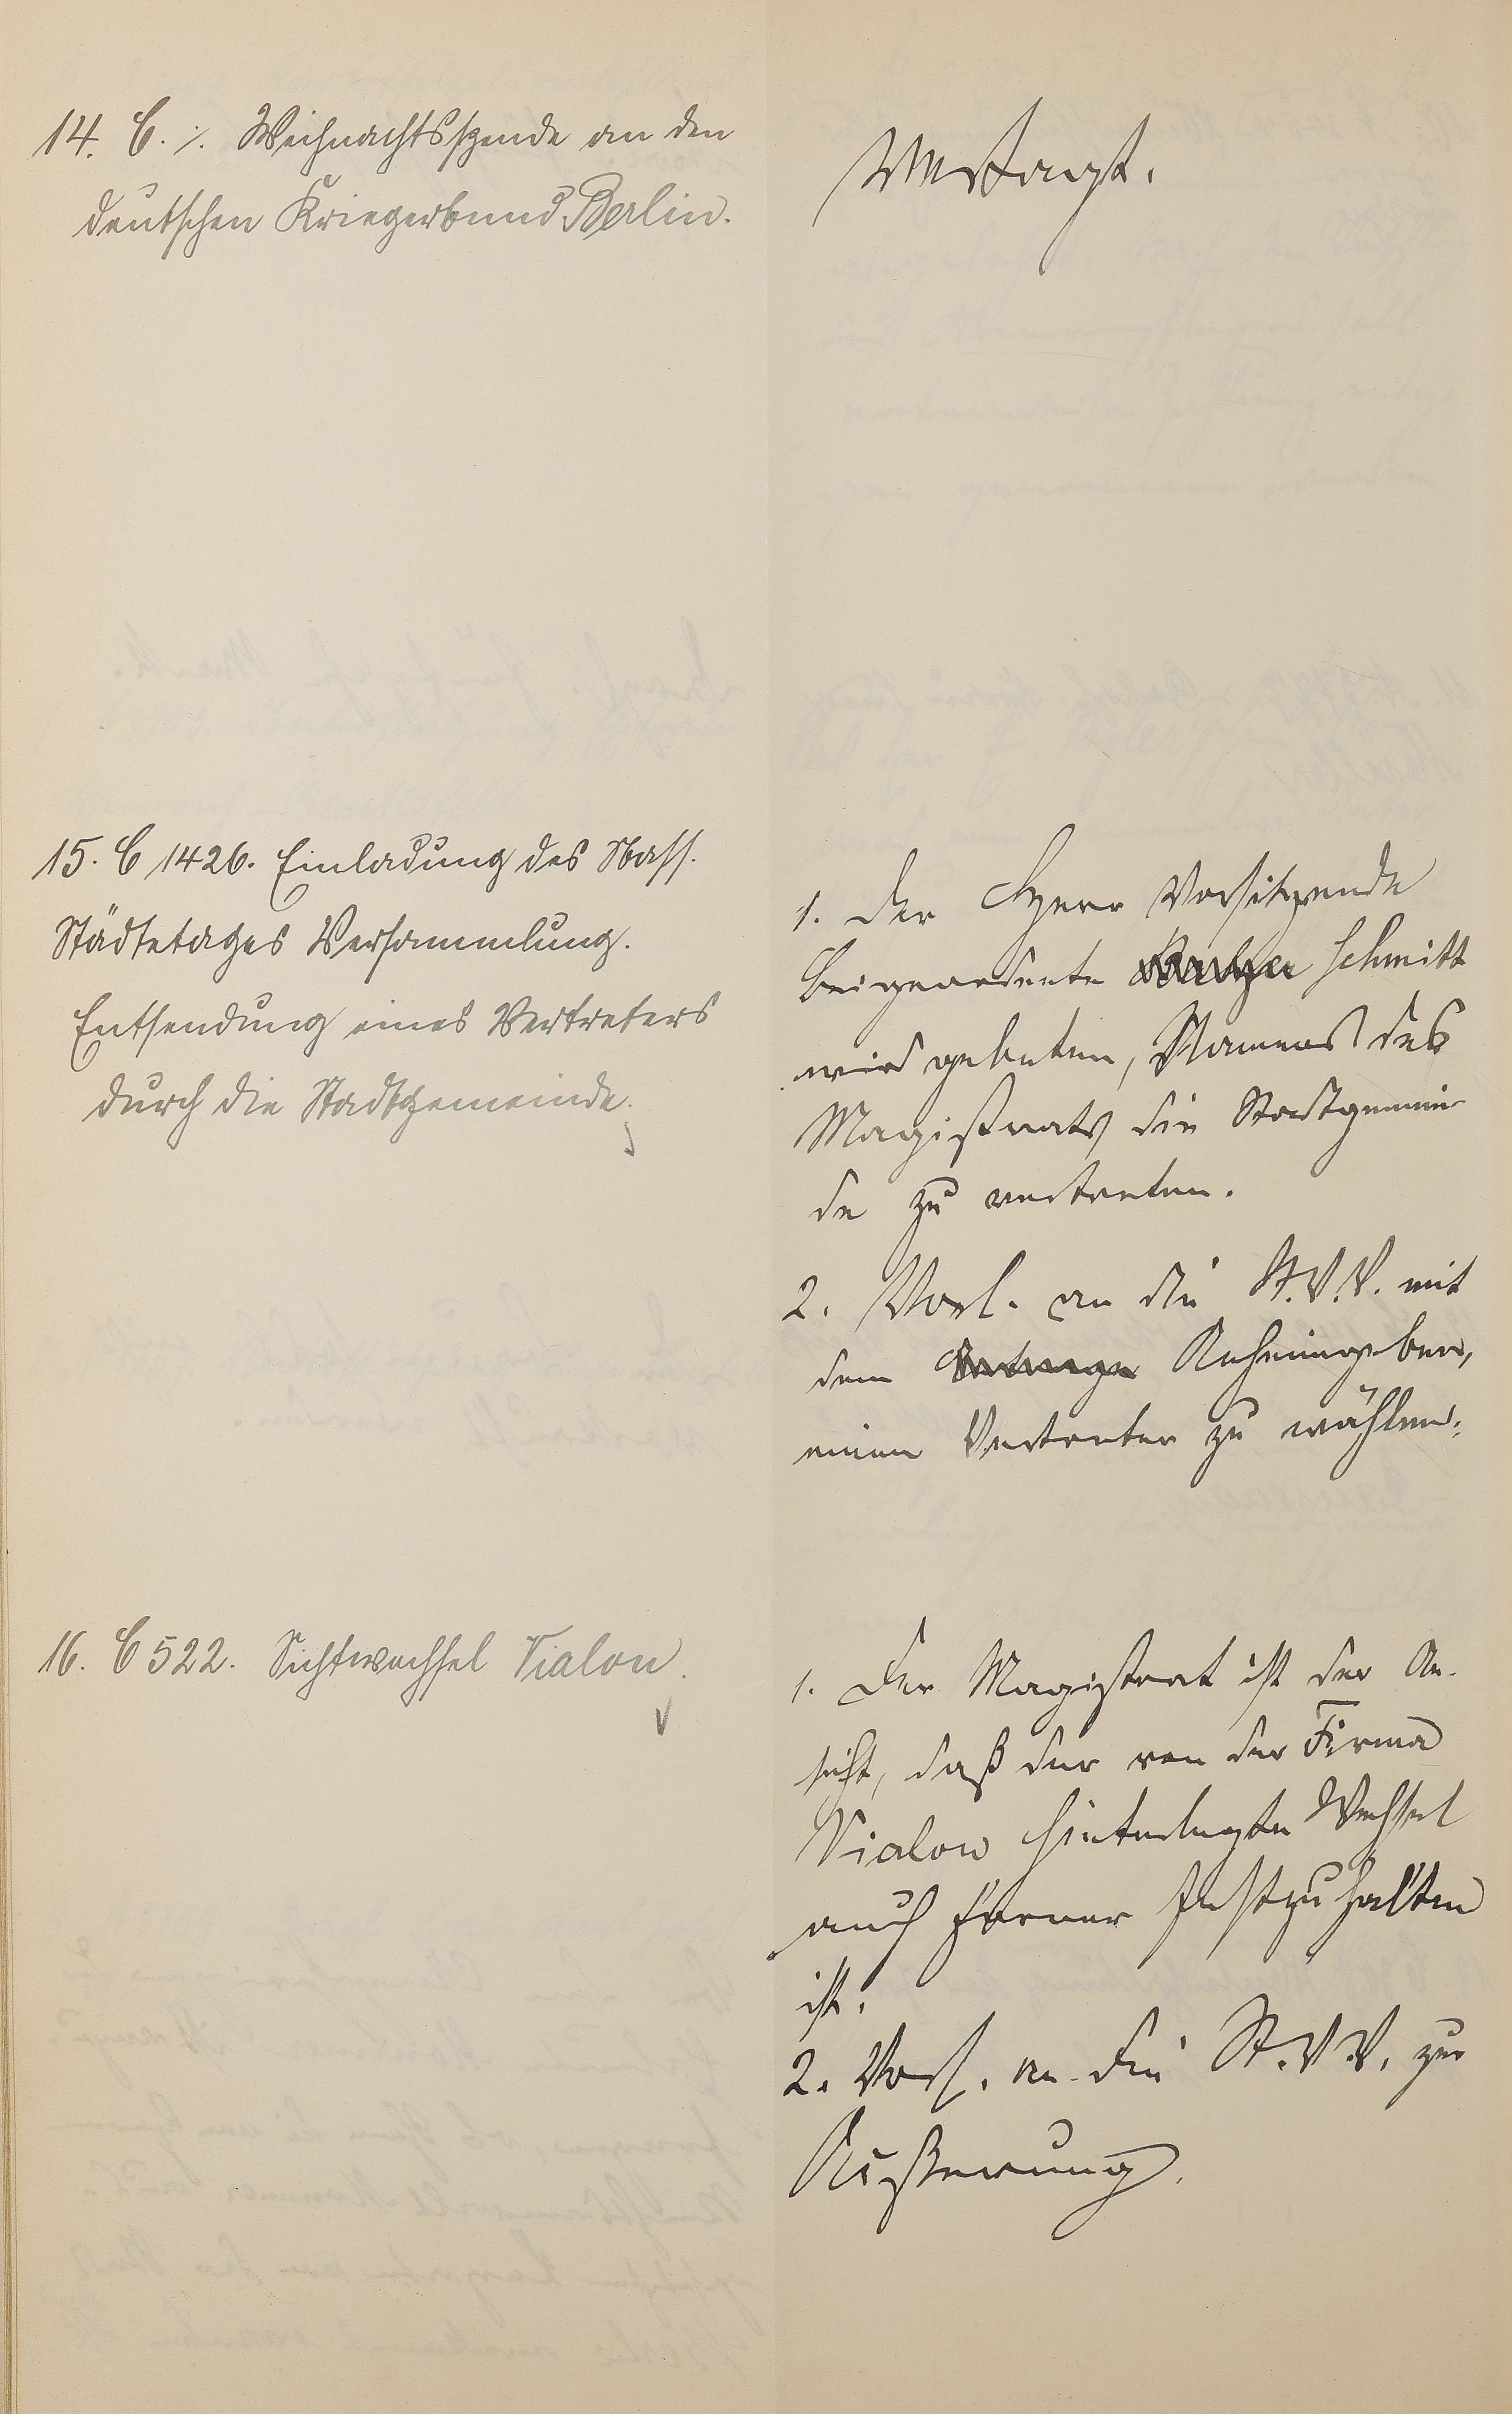 14. C. ⁒. Weihnachtsspende an den
deutschen Kriegerbund Berlin.
Vertagt.
15. C 1426. Einladung des Nass.
Städtetages Versammlung.
Entsendung eines Vertreters
durch die Stadtgemeinde.
1. Der Herr Vorsitzende
Beigeordnete Schmitt
wird gebeten, Namens des
Magistrats die Stadtgemein
de zu vertreten.
2. Vorl. an die St.V.V. mit
dem Anheimgeben,
einen Vertreter zu wählen.
16. C 522. Sichtwechsel Vialon.
1. Der Magistrat ist der An-
sicht, daß der von der Firma
Vialon hinterlegte Wechsel
auch ferner festzuhalten
ist.
2. Vorl. an die St.V.V. zur
Äußerung.